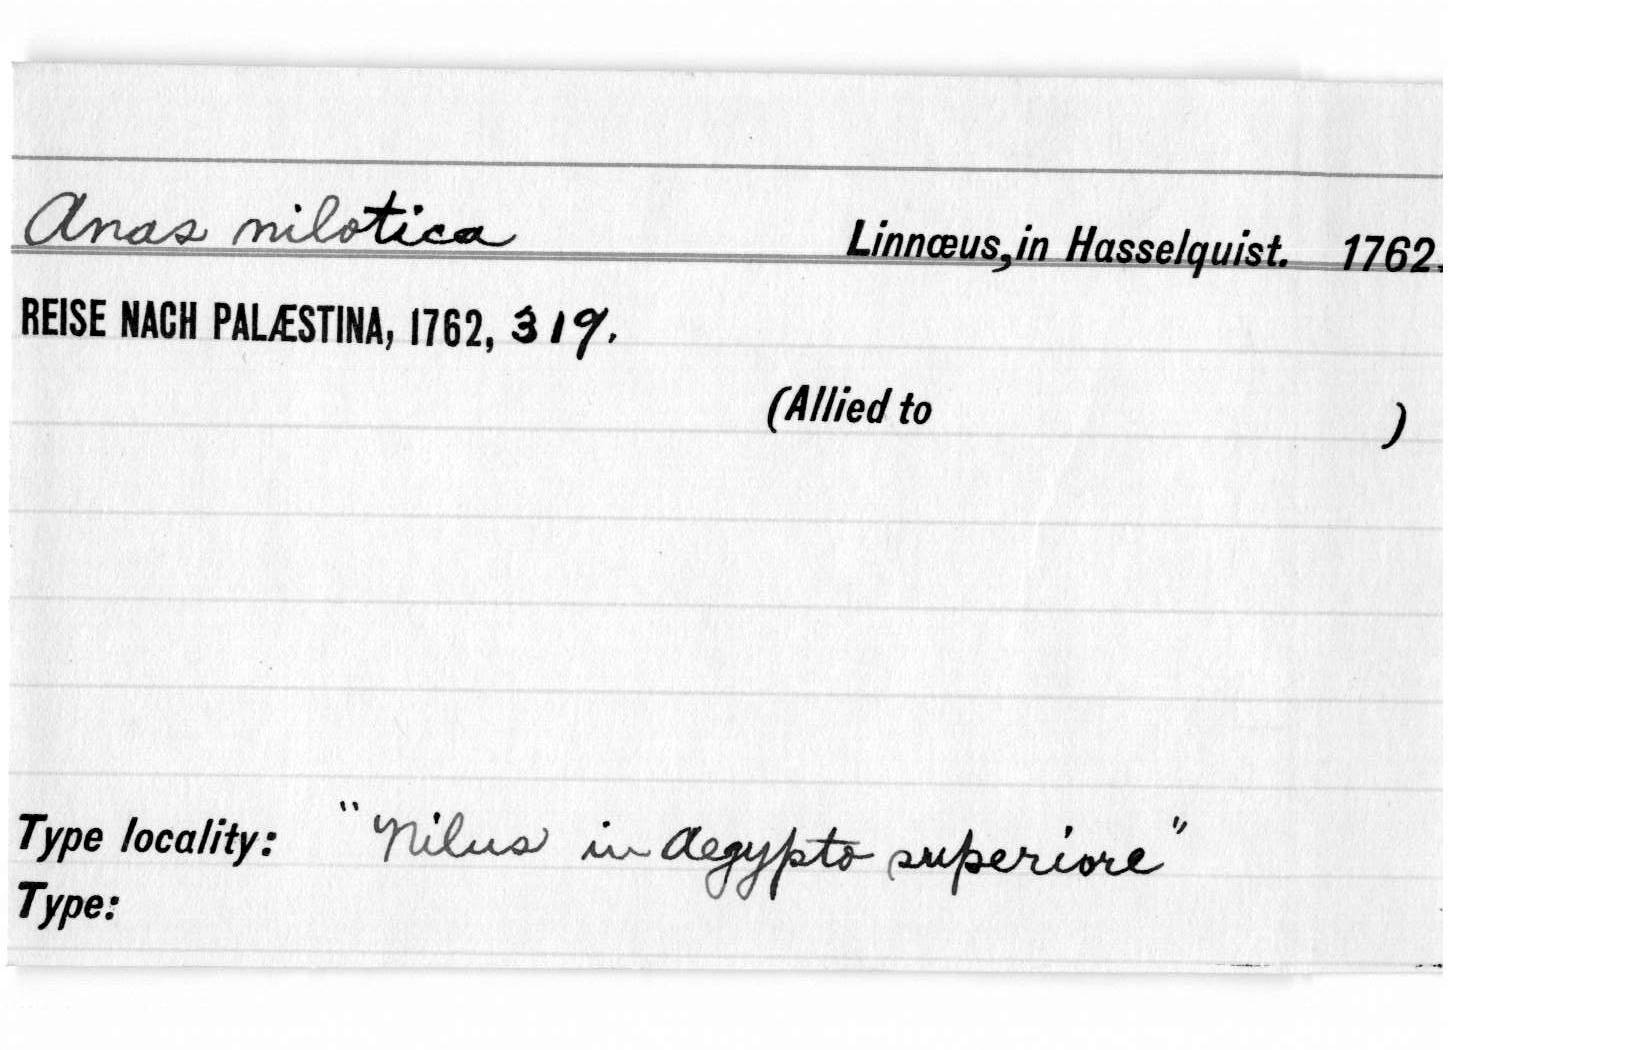 Anas nilotica Linnœus, in Hasselquist. 1762.
REISE NACH PALÆSTINA, 1762, 319.
(Allied to )
Type locality: "Nilus in Aegypto superiore"
Type: